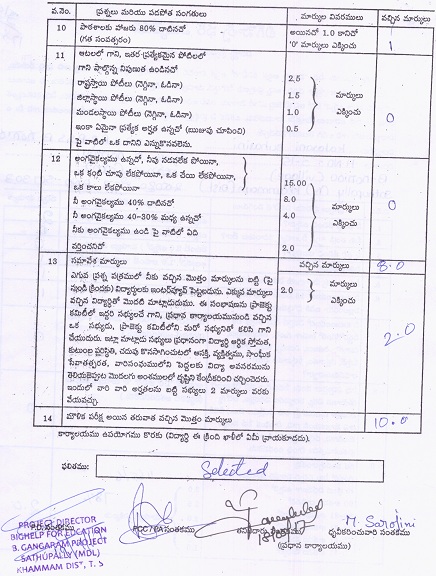 వ.నెం. ప్రశ్నలు మరియు పడపోత సంగతులు మార్కుల వివరములు వచ్చిన మార్కులు
10 పాఠశాలకు హాజరు 80% దాటినచో అయినచో 1.0 కానిచో 1
(గత సంవత్సరం) '0' మార్కులు ఎక్కించు
11 ఆటలలో గాని, ఇతర ప్రత్యేకమైన పోటీలలో
గాని పాల్గొన్న నిపుణుత ఉండినచో
రాష్ట్రస్థాయి పోటీలు (నెగ్గినా, ఓడినా) 2.5
జిల్లాస్థాయి పోటీలు (నెగ్గినా, ఓడినా) 1.5 మార్కులు
మండలస్థాయి పోటీలు (నెగ్గినా, ఓడినా) 1.0 ఎక్కించు 0
ఇంకా ఏమైనా ప్రత్యేక అర్హత ఉన్నచో (ఋజువు చూపించి) 0.5
పై వాటిలో ఒక దానిని ఎన్నుకొనవలెను.
12 అంగవైకల్యము ఉన్నచో, నీవు నడవలేక పోయినా,
ఒక కంటి చూపు లేకపోయినా, ఒక చేయి లేకపోయినా, 15.00
ఒక కాలు లేకపోయినా
నీ అంగవైకల్యము 40% దాటినచో 8.0 మార్కులు 0
నీ అంగవైకల్యము 40-30% మధ్య ఉన్నచో 4.0 ఎక్కించు
నీకు అంగవైకల్యము ఉండి పై వాటిలో ఏది
వర్తించనిచో 2.0
13 సమావేశ మార్కులు వచ్చిన మార్కులు 8.0
ఎగువ ప్రశ్న పత్రములో నీకు వచ్చిన మొత్తం మార్కులను బట్టి (పై
నుండి క్రిందకు) విద్యార్థులకు ఇంటర్వ్యూస్ పెట్టబడును. ఎక్కువ మార్కులు 2.0 మార్కులు
వచ్చిన విద్యార్థితో మొదటి మాట్లాడుదుము. ఈ సంభాషణను ప్రాజెక్టు ఎక్కించు
కమిటీలో ఇద్దరి సభ్యులచే గాని, ప్రధాన కార్యాలయమునుండి వచ్చిన
ఒక సభ్యుడు, ప్రాజెక్టు కమిటీలోని మరో సభ్యునితో కలిసి గాని 2.0
చేయుదురు. ఇట్లా మాట్లాడు సభ్యులు ప్రధానంగా విద్యార్థి ఆర్థిక స్తోమత,
కుటుంబ పరిస్థితి, చదువు కొనసాగించుటలో ఆసక్తి, వ్యక్తిత్వము, సాంఘీక
సేవాతత్పరత, వారిసంఘములోని పెద్దలకు విద్యా అవసరమును
తెలియజెప్పుట మొదలగు అంశములలో దృష్టిని కేంద్రీకరించి చర్చించెదరు.
ఇందులో వారి వారి అర్హతలను బట్టి సభ్యులు 2 మార్కులు వరకు
వేయవచ్చు.
14 మౌఖిక పరీక్ష అయిన తరువాత వచ్చిన మొత్తం మార్కులు 10.0
కార్యాలయము ఉపయోగము కొరకు (విద్యార్థి ఈ క్రింది ఖాళీలో ఏమీ వ్రాయకూడదు).
ఫలితము: Selected
M. Sarojini
PROJECT DIRECTOR
BIGHELP FOR EDCATION
B. GANGARAM PROJECT
SATHUPALLY (MDL)
KHAMMAM DIST, T. S
ధృవీకరించువారి సంతకము
(ప్రధాన కార్యాలయము)